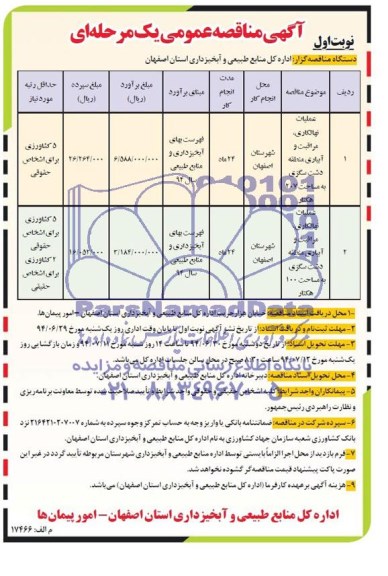 آگهی مناقصه عمومی یک مرحله‌ای
نوبت اول
دستگاه مناقصه گزار: اداره کل منابع طبیعی و آبخیزداری استان اصفهان
ردیف موضوع مناقصه محل انجام کار مدت انجام کار مبنای برآورد مبلغ برآورد (ریال) مبلغ سپرده (ریال) حداقل رتبه مورد نیاز
۱ عملیات نهالکاری، مراقبت و آبیاری منطقه دشت سگزی به مساحت ۲۰۷ هکتار شهرستان اصفهان ۲۴ ماه فهرست بهای آبخیزداری و منابع طبیعی سال ۹۳ ۶/۵۸۸/۰۰۰/۰۰۰ ۲۶/۲۶۴/۰۰۰ ۵ کشاورزی برای اشخاص حقوقی
۲ عملیات نهالکاری، مراقبت و آبیاری منطقه دشت سگزی به مساحت ۱۰۰ هکتار شهرستان اصفهان ۲۴ ماه فهرست بهای آبخیزداری و منابع طبیعی سال ۹۳ ۳/۱۸۴/۰۰۰/۰۰۰ ۱۶/۰۵۲/۰۰۰ ۵ کشاورزی برای اشخاص حقوقی ۲ کشاورزی برای اشخاص حقیقی
۱- محل دریافت اسناد مناقصه: خیابان هزارجریب اداره کل منابع طبیعی و آبخیزداری استان اصفهان – امور پیمان‌ها.
۲- مهلت ثبت‌نام و دریافت اسناد: از تاریخ نشر آگهی نوبت اول تا پایان وقت اداری روز یک‌شنبه مورخ ۹۴/۰۶/۲۹
۳- مهلت تحویل اسناد: از تاریخ دوشنبه مورخ ۹۴/۰۶/۳۰ تا ساعت ۱۴ روز شنبه مورخ و زمان بازگشایی روز
یک‌شنبه مورخ ۹۴/۰۷/۱۲ ساعت ۸:۳۰ صبح در محل سالن جلسات اداره کل می‌باشد.
۴- محل تحویل اسناد مناقصه: دبیرخانه اداره کل منابع طبیعی و آبخیزداری استان اصفهان.
۵- پیمانکاران واجد شرایط: کلیه اشخاص حقیقی و حقوقی واجد شرایط تایید صلاحیت شده توسط معاونت برنامه‌ریزی
و نظارت راهبردی رئیس‌جمهور.
۶- سپرده شرکت در مناقصه: ضمانتنامه بانکی یا واریز وجه به حساب تمرکز وجوه سپرده به شماره ۲۱۶۴۲۱-۲۰۷۰۰۷ نزد
بانک کشاورزی شعبه سازمان جهاد کشاورزی به نام اداره کل منابع طبیعی و آبخیزداری استان اصفهان.
۷- فرم بازدید از محل اجرا الزاماً بایستی توسط اداره منابع طبیعی و آبخیزداری شهرستان مربوطه تأیید گردد در غیر این
صورت پاکت پیشنهاد قیمت مناقصه‌گر گشوده نخواهد شد.
۹- هزینه آگهی بر عهده کارفرما (اداره کل منابع طبیعی و آبخیزداری استان اصفهان) می‌باشد.
اداره کل منابع طبیعی و آبخیزداری استان اصفهان - امور پیمان‌ها
م الف: ۱۷۴۶۶
ParsNamadData
پایگاه اطلاع رسانی مناقصه و مزایده